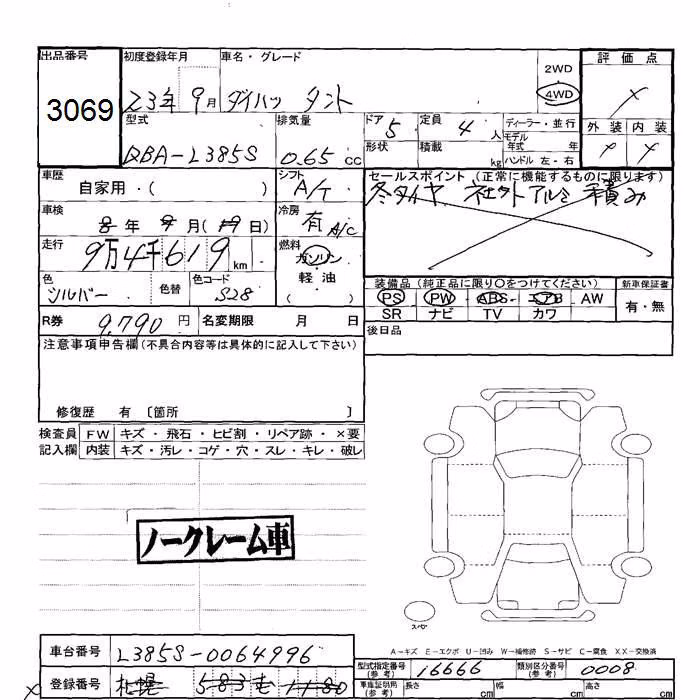 出品番号
3069
初度登録年月
23年 9月
車名・グレード
ダイハツ タント
2WD
4WD
評価点
×
型式
QBA-L385S
排気量
0.65 CC
ドア 5
定員 4 人
ディーラー・並行
モデル年式 年
形状
積載 kg
ハンドル 左・右
外装
内装
× ×
車歴
自家用・( )
シフト
A/T
セールスポイント (正常に機能するものに限ります)
冬タイヤ 社外アルミ 積み
車検
年 月 ( 日)
冷房
有 A/C
走行
9万4千619 km
燃料
ガソリン
軽・油
( )
色
シルバー
色替
色コード
S28
装備品 (純正品に限り○をつけてください)
新車保証書
PS PW ABS エアB AW
SR ナビ TV カワ
有・無
R券 9,790 円
名変期限 月 日
後日品
注意事項申告欄 (不具合内容等は具体的に記入して下さい)
修復歴 有 〔箇所 〕
検査員記入欄
FW キズ・飛石・ヒビ割・リペア跡・×要
内装 キズ・汚レ・コゲ・穴・スレ・キレ・破レ
ノークレーム車
スペア
A-キズ E-エクボ U-凹み W-補修跡 S-サビ C-腐食 XX-交換済
車台番号 L385S-0064996
登録番号 札幌 583
型式指定番号 (参考) 16666
類別区分番号 (参考) 0008
車庫証明用 (参考)
長さ cm
幅 cm
高さ cm